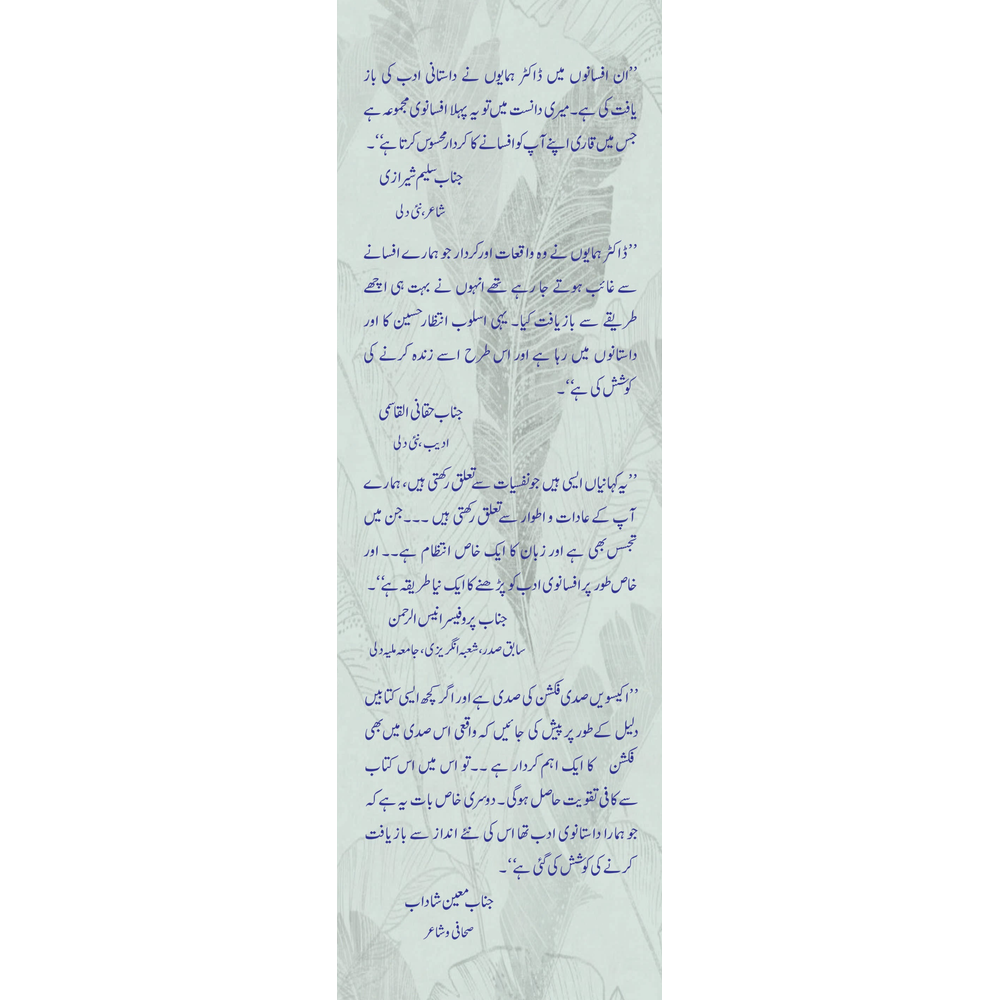 ’’ان افسانوں میں ڈاکٹر ہمایوں نے داستانی ادب کی باز
یافت کی ہے۔ میری دانست میں تو یہ پہلا افسانوی مجموعہ ہے
جس میں قاری اپنے آپ کو افسانے کا کردار محسوس کرتا ہے‘‘۔
جناب سلیم شیرازی
شاعر، نئی دلی
’’ڈاکٹر ہمایوں نے وہ واقعات اور کردار جو ہمارے افسانے
سے غائب ہوتے جا رہے تھے انہوں نے بہت ہی اچھے
طریقے سے باز یافت کیا۔ یہی اسلوب انتظار حسین کا اور
داستانوں میں رہا ہے اور اس طرح اسے زندہ کرنے کی
کوشش کی ہے‘‘۔
جناب حقانی القاسمی
ادیب، نئی دلی
’’یہ کہانیاں ایسی ہیں جو نفسیات سے تعلق رکھتی ہیں، ہمارے
آپ کے عادات و اطوار سے تعلق رکھتی ہیں ۔۔۔ جن میں
تجسس بھی ہے اور زبان کا ایک خاص انتظام ہے۔۔ اور
خاص طور پر افسانوی ادب کو پڑھنے کا ایک نیا طریقہ ہے‘‘۔
جناب پروفیسر انیس الرحمن
سابق صدر، شعبہ انگریزی، جامعہ ملیہ دلی
’’اکیسویں صدی فکشن کی صدی ہے اور اگر کچھ ایسی کتابیں
دلیل کے طور پر پیش کی جائیں کہ واقعی اس صدی میں بھی
فکشن کا ایک اہم کردار ہے ۔۔ تو اس میں اس کتاب
سے کافی تقویت حاصل ہوگی۔ دوسری خاص بات یہ ہے کہ
جو ہمارا داستانوی ادب تھا اس کی نئے انداز سے باز یافت
کرنے کی کوشش کی گئی ہے‘‘۔
جناب معین شاداب
صحافی و شاعر